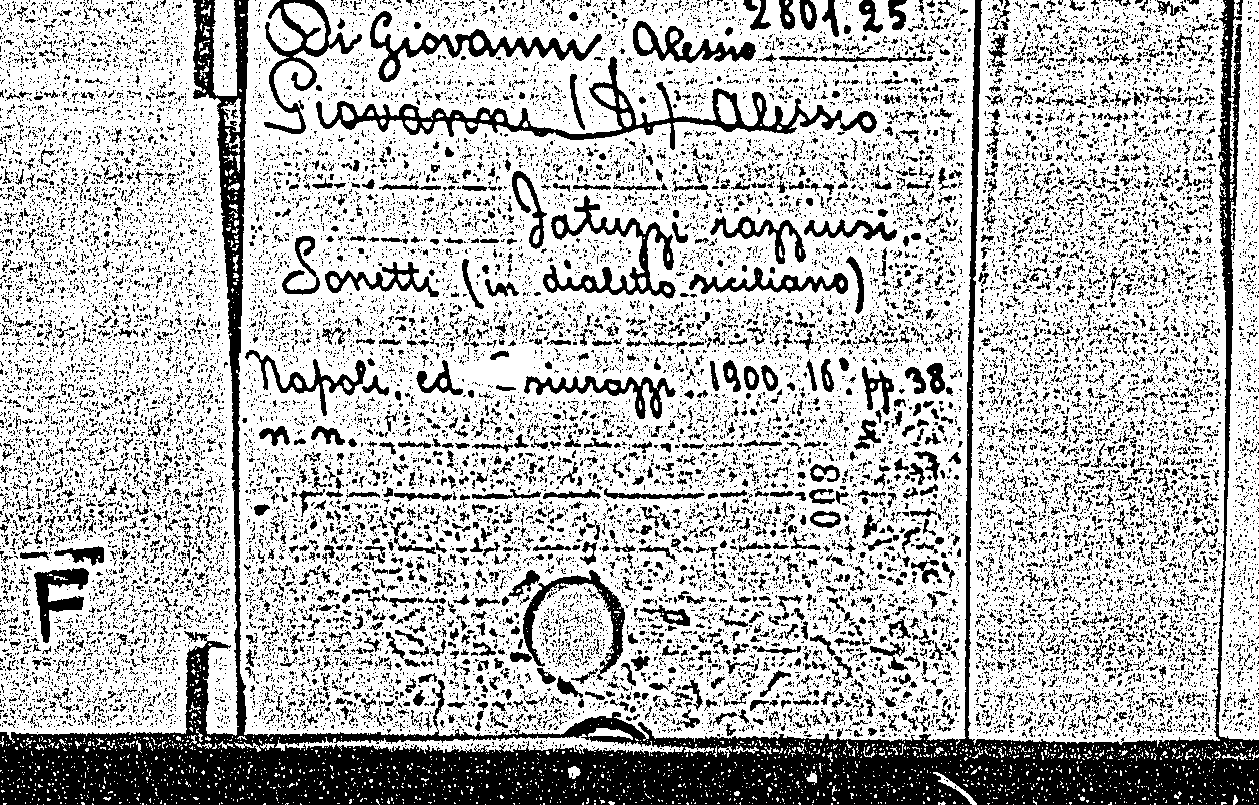 2801.25
Di Giovanni Alessio
Giovanni (Di) Alessio
Fatuzzi razziusi.
Sonetti (in dialetto siciliano)
Napoli, ed. 1900. 16° pp. 38.
n. n.
008
F